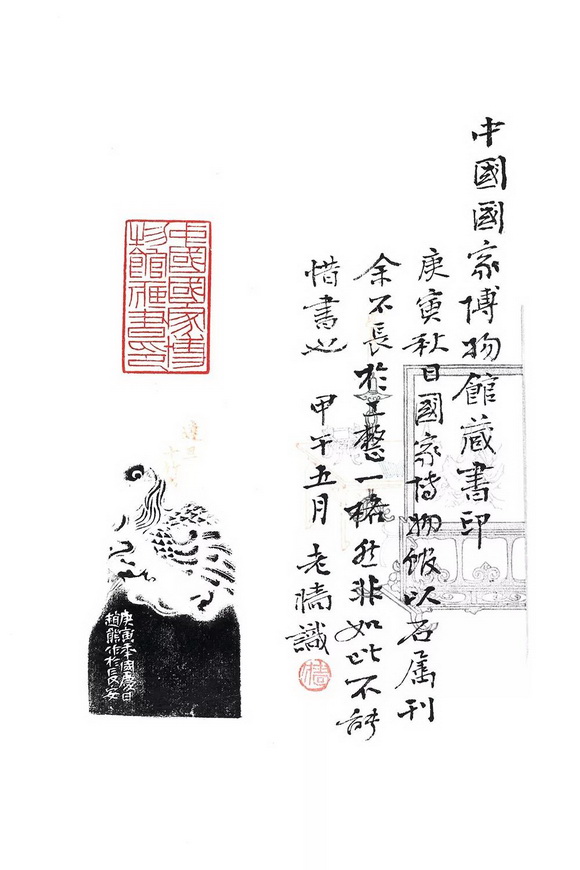 中國國家博物館藏書印
庚寅秋日國家博物館以石属刊
余不長於工整一格然非如此不能
惜書也 甲午五月 老憜識
中國國家博
物館藏書印
庚寅年國慶日
趙熊作於長安